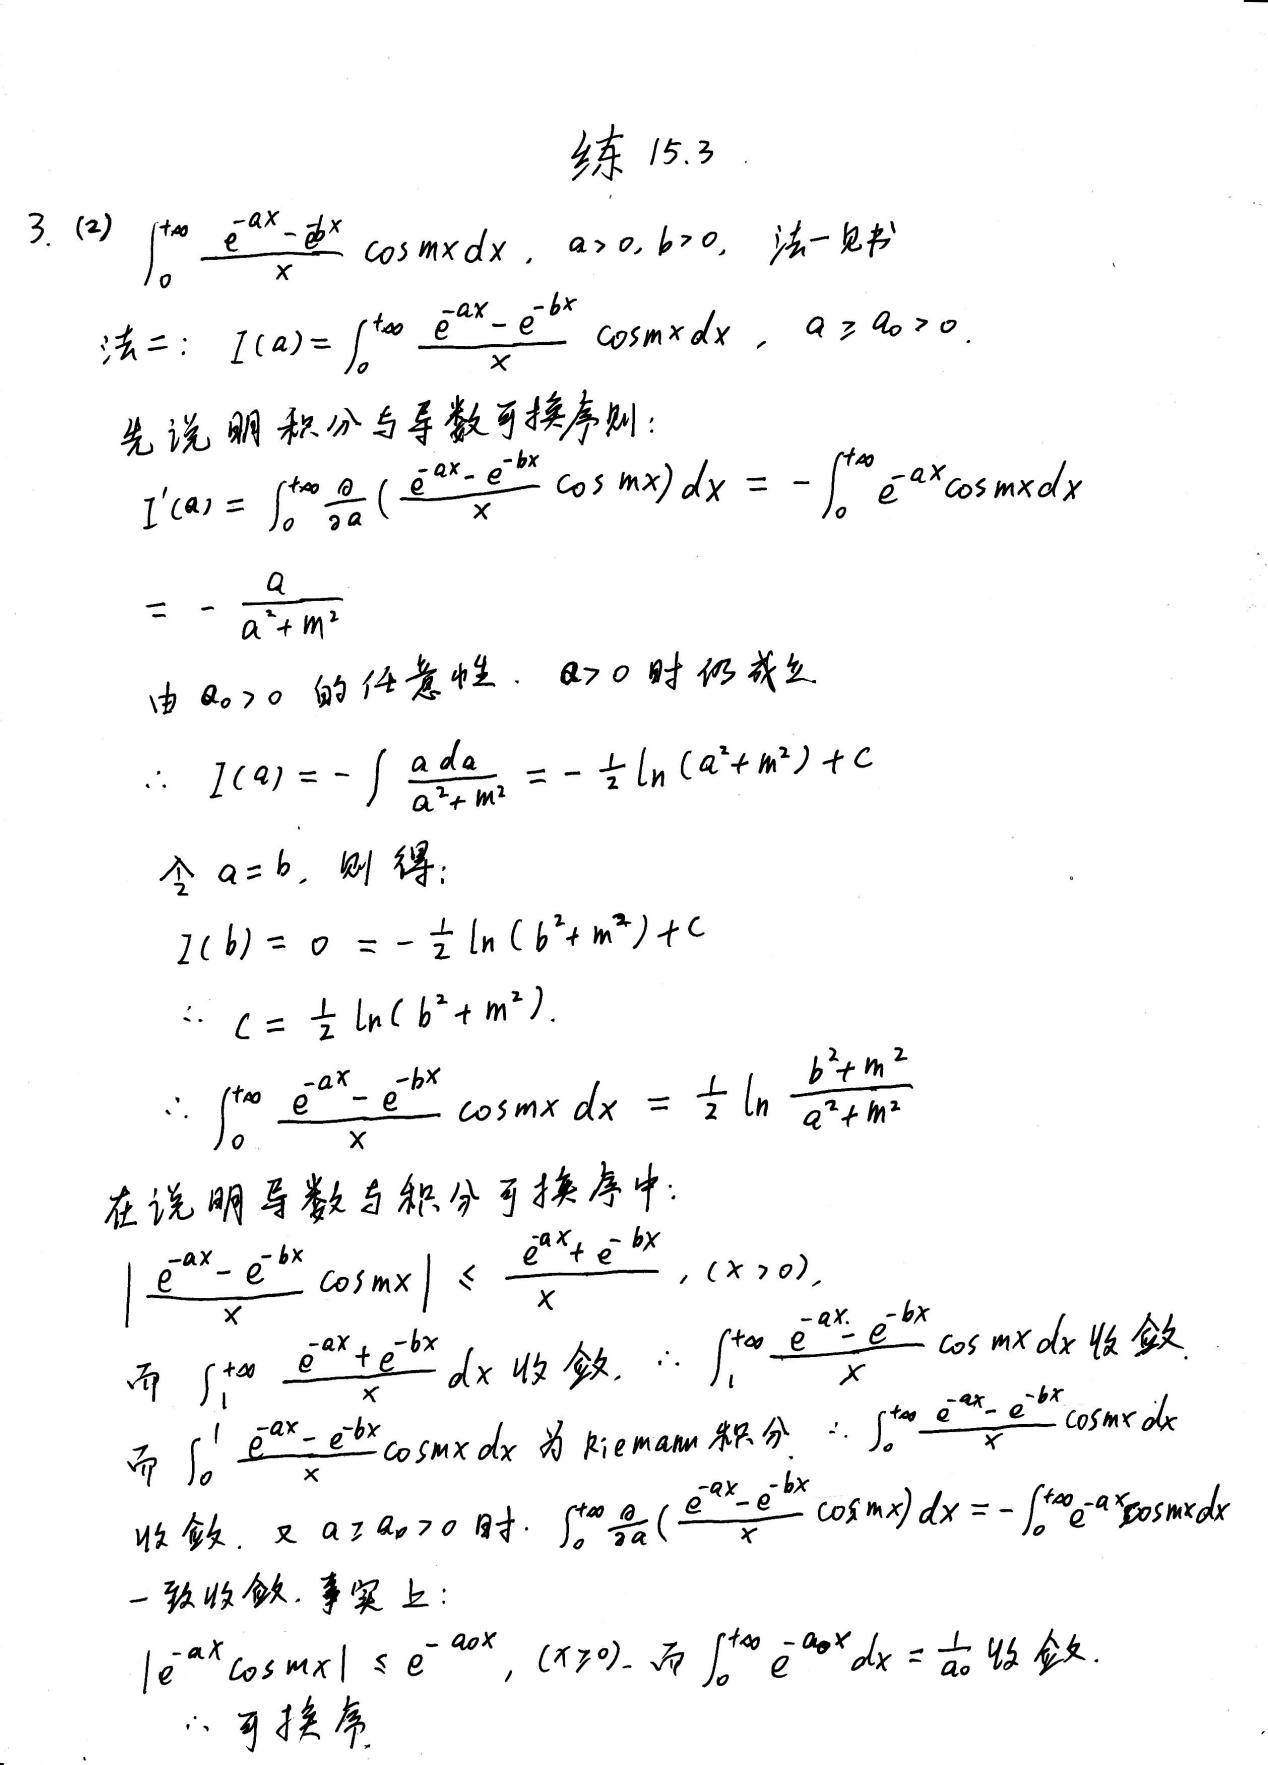 练 15.3
3. (2) ∫₀^{+∞} (e^{-ax} - e^{-bx})/x cos mx dx, a>0, b>0, 法一见书
法二: I(a) = ∫₀^{+∞} (e^{-ax} - e^{-bx})/x cos mx dx, a ≥ a₀ > 0.
先说明积分与导数可换序则:
I'(a) = ∫₀^{+∞} ∂/∂a ((e^{-ax} - e^{-bx})/x cos mx) dx = - ∫₀^{+∞} e^{-ax} cos mx dx
= - a/(a²+m²)
由 a₀>0 的任意性. a>0 时仍成立
∴ I(a) = - ∫ a da/(a²+m²) = - 1/2 ln(a²+m²) + C
令 a=b, 则得:
I(b) = 0 = - 1/2 ln(b²+m²) + C
∴ C = 1/2 ln(b²+m²).
∴ ∫₀^{+∞} (e^{-ax} - e^{-bx})/x cos mx dx = 1/2 ln (b²+m²)/(a²+m²)
在说明导数与积分可换序中:
|(e^{-ax} - e^{-bx})/x cos mx| ≤ (e^{-ax} + e^{-bx})/x, (x>0),
而 ∫₁^{+∞} (e^{-ax} + e^{-bx})/x dx 收敛. ∴ ∫₁^{+∞} (e^{-ax} - e^{-bx})/x cos mx dx 收敛.
而 ∫₀^1 (e^{-ax} - e^{-bx})/x cos mx dx 为 Riemann 积分. ∴ ∫₀^{+∞} (e^{-ax} - e^{-bx})/x cos mx dx
收敛. 又 a ≥ a₀ > 0 时. ∫₀^{+∞} ∂/∂a ((e^{-ax} - e^{-bx})/x cos mx) dx = - ∫₀^{+∞} e^{-ax} cos mx dx
一致收敛. 事实上:
|e^{-ax} cos mx| ≤ e^{-a₀x}, (x≥0). 而 ∫₀^{+∞} e^{-a₀x} dx = 1/a₀ 收敛.
∴ 可换序.